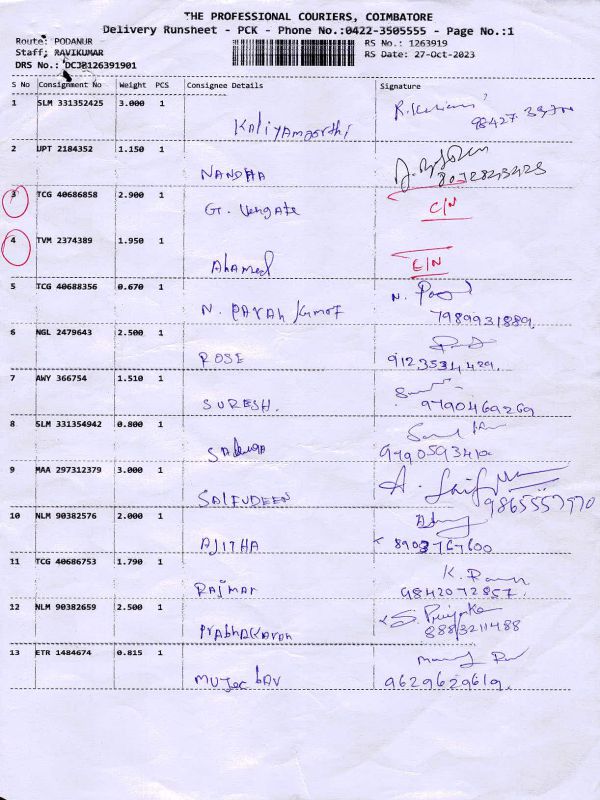 THE PROFESSIONAL COURIERS, COIMBATORE
Delivery Runsheet - PCK - Phone No.:0422-3505555 - Page No.:1
Route: PODANUR RS No.: 1263919
Staff: RAVIKUMAR RS Date: 27-Oct-2023
DRS No.: DCJB126391901
S No Consignment No Weight PCS Consignee Details Signature
1 SLM 331352425 3.000 1
Kaliyamoorthi
2 UPT 2184352 1.150 1
NANDHA 8072843423
3 TCG 40686858 2.900 1
G. Vengate C/N
4 TVM 2374389 1.950 1
Ahamed E/N
5 TCG 40688356 0.670 1
N. Pavan kumar 7989931889.
6 NGL 2479643 2.500 1
ROSE 9123534429.
7 AWY 366754 1.510 1
SURESH. 9790469269
8 SLM 331354942 0.800 1
9790593410
9 MAA 297312379 3.000 1
SAIFUDEEN 9865557970
10 NLM 90382576 2.000 1
AJITHA 8903767600
11 TCG 40686753 1.790 1 K.
Rajmar 9842072857.
12 NLM 90382659 2.500 1 S. Priyanka
Prabhakaran 8883211488
13 ETR 1484674 0.815 1
9629629619.